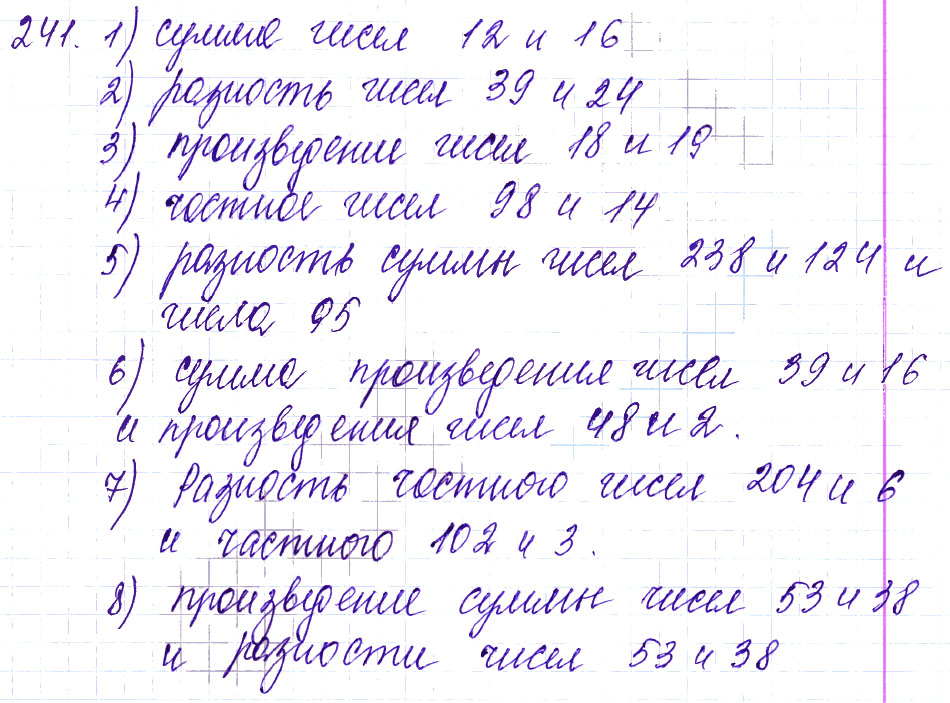 241. 1) сумма чисел 12 и 16
2) разность чисел 39 и 24
3) произведение чисел 18 и 19
4) частное чисел 98 и 14
5) разность суммы чисел 238 и 124 и
числа 95
6) сумма произведения чисел 39 и 16
и произведения чисел 48 и 2.
7) Разность частного чисел 204 и 6
и частного 102 и 3.
8) произведение суммы чисел 53 и 38
и разности чисел 53 и 38